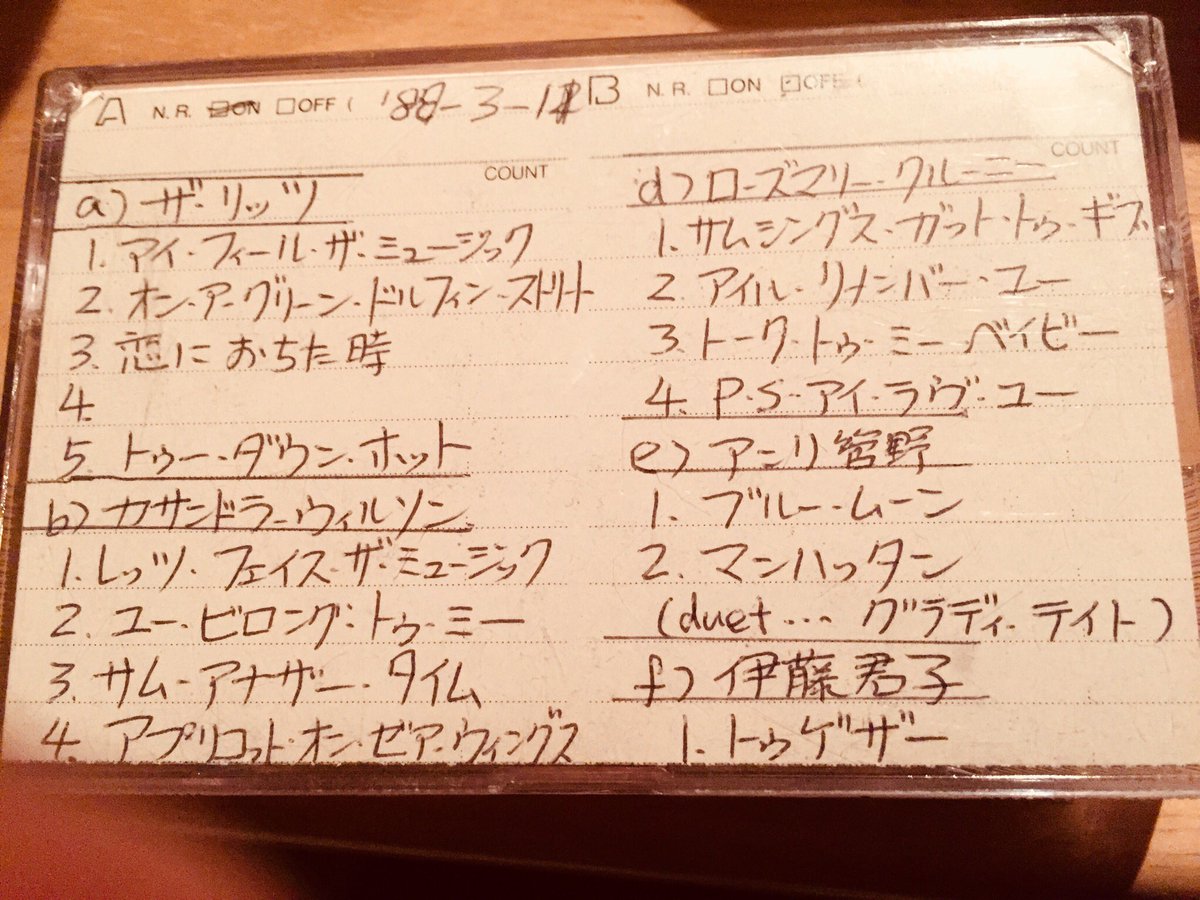 A N.R. ☐ON ☐OFF ( '88-3-12
COUNT
a) ザ・リッツ
1. アイ・フィール・ザ・ミュージック
2. オン・ア・グリーン・ドルフィン・ストリート
3. 恋におちた時
4.
5. トゥー・ダウン・ホット
b) カサンドラ・ウィルソン
1. レッツ・フェイス・ザ・ミュージック
2. ユー・ビロング・トゥ・ミー
3. サム・アナザー・タイム
4. アプリコット・オン・ゼア・ウィングス
B N.R. ☐ON ☑OFF (
COUNT
d) ローズマリー・クルーニー
1. サムシングス・ガット・トゥ・ギブ
2. アイル・リメンバー・ユー
3. トーク・トゥ・ミー ベイビー
4. P・S・アイ・ラヴ・ユー
e) アンリ菅野
1. ブルー・ムーン
2. マンハッタン
(duet… グラディ・テイト)
f) 伊藤君子
1. トゥゲザー